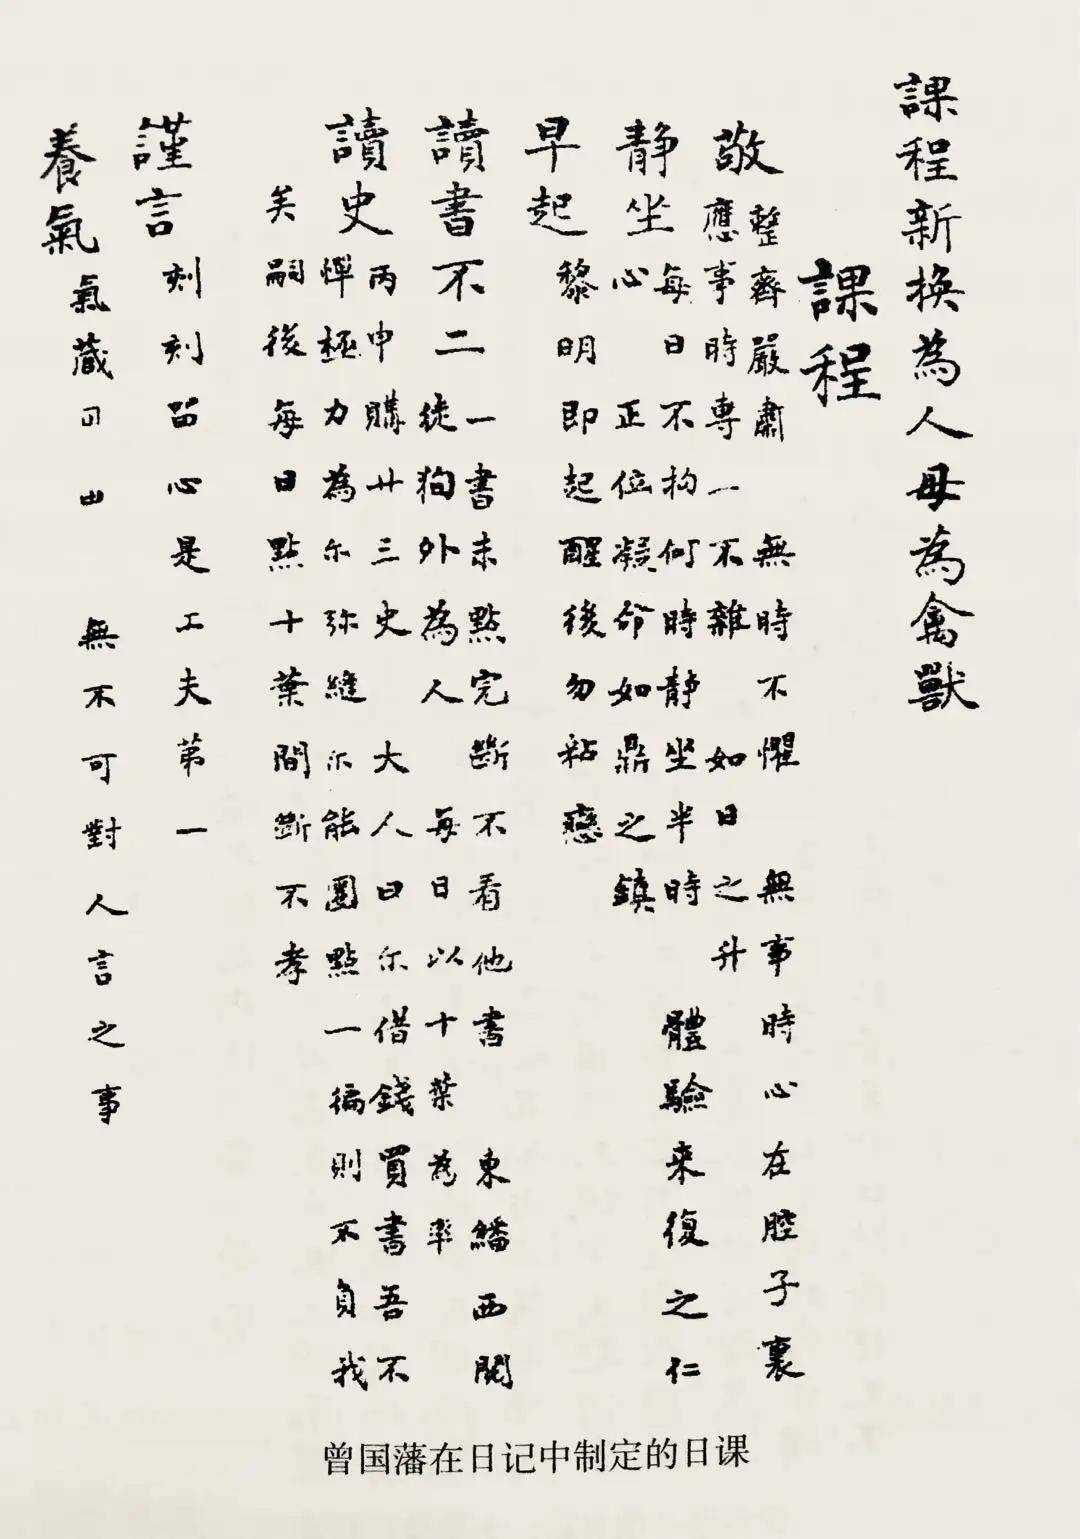 課程新換為人毋為禽獸
課程
敬
整齊嚴肅 無時不懼 無事時心在腔子裏
應事時專一不雜 如日之升
静坐
每日不拘何時静坐半時 體驗来復之仁
心 正位凝命如鼎之鎮
早起
黎明即起醒後勿粘戀
讀書不二
一書未點完斷不看他書 東繙西閱
徒狥外為人 每日以十葉為率
讀史
丙申購廿三史 大人曰尔借錢買書吾不
憚極力為尔弥縫尔能圈點一徧則不負我
矣嗣後每日點十葉間斷不孝
謹言
刻刻留心是工夫第一
養氣
氣藏 無不可對人言之事
曾国藩在日记中制定的日课